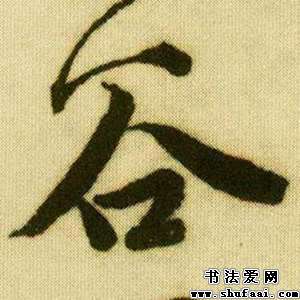 谷
书法爱网
www.shufaai.com